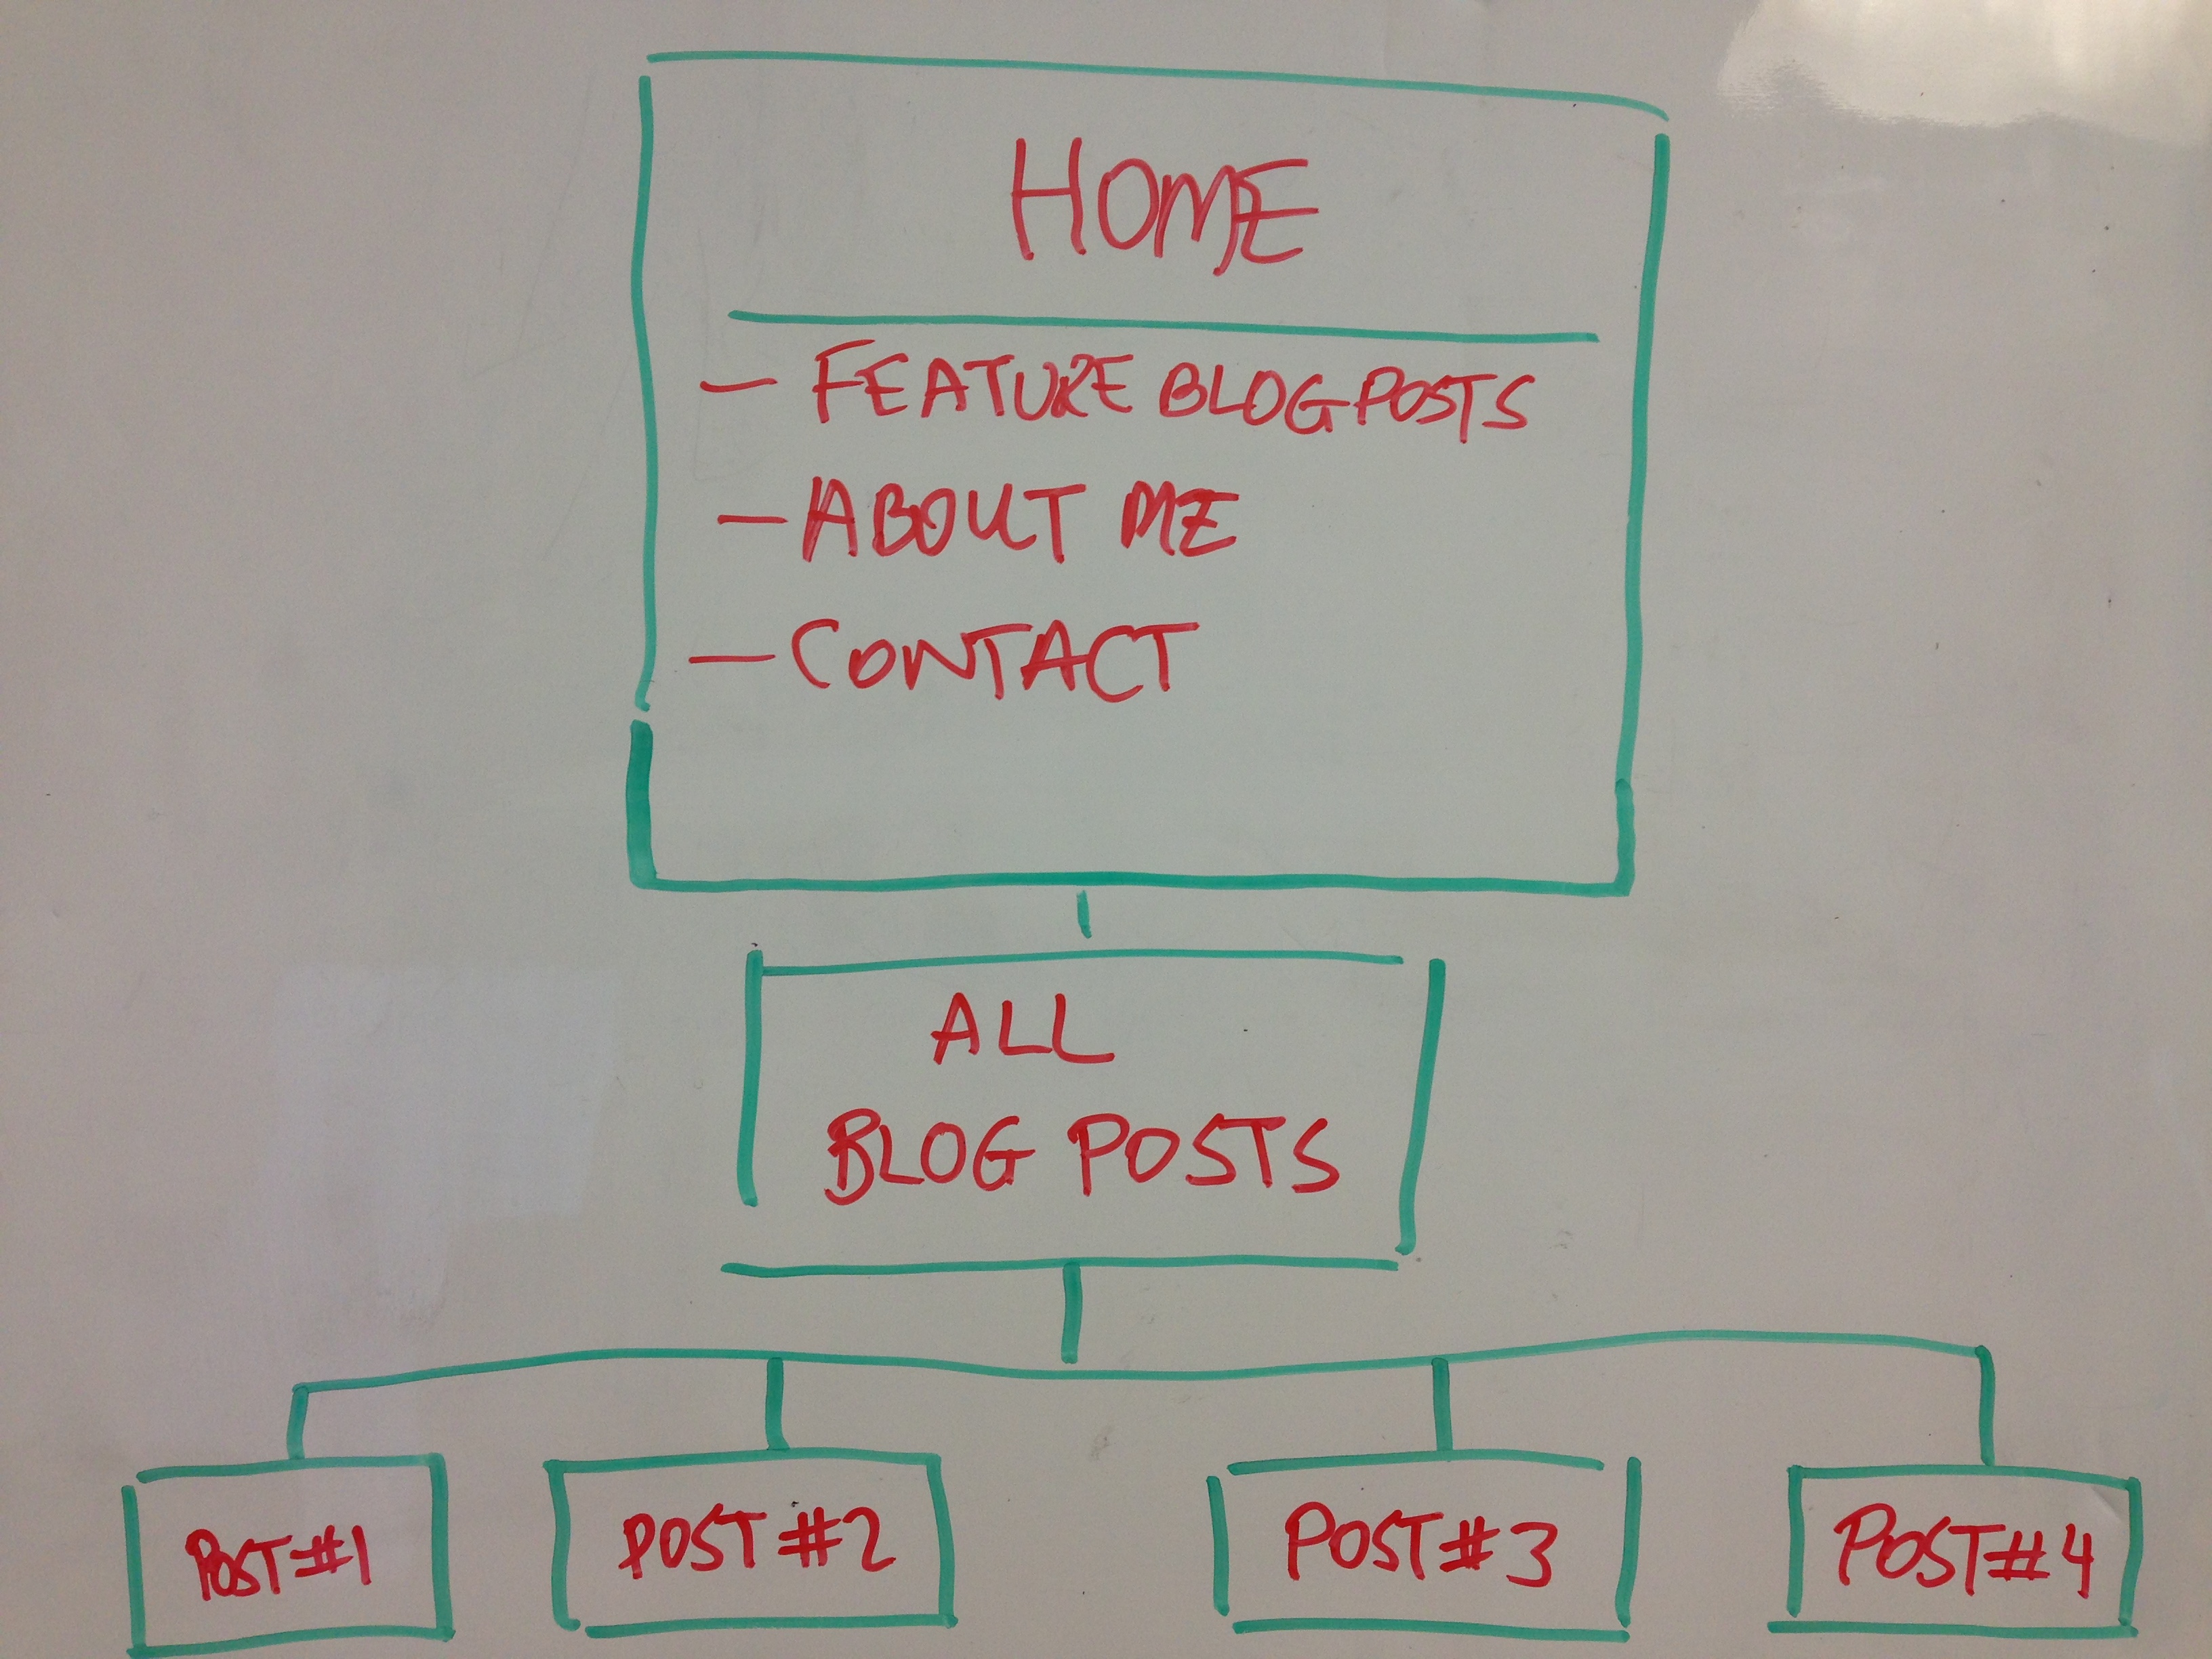 HOME
- FEATURE BLOG POSTS
- ABOUT ME
- CONTACT
ALL
BLOG POSTS
POST #1
POST #2
POST #3
POST #4